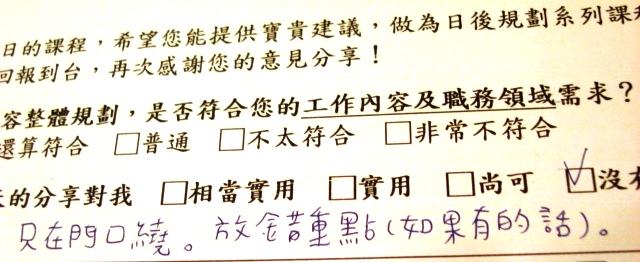 日的課程，希望您能提供寶貴建議，做為日後規劃系列課程
回報到台，再次感謝您的意見分享！
容整體規劃，是否符合您的工作內容及職務領域需求？
還算符合 □普通 □不太符合 □非常不符合
的分享對我 □相當實用 □實用 □尚可 ☑沒有
只在門口繞。放錯重點(如果有的話)。